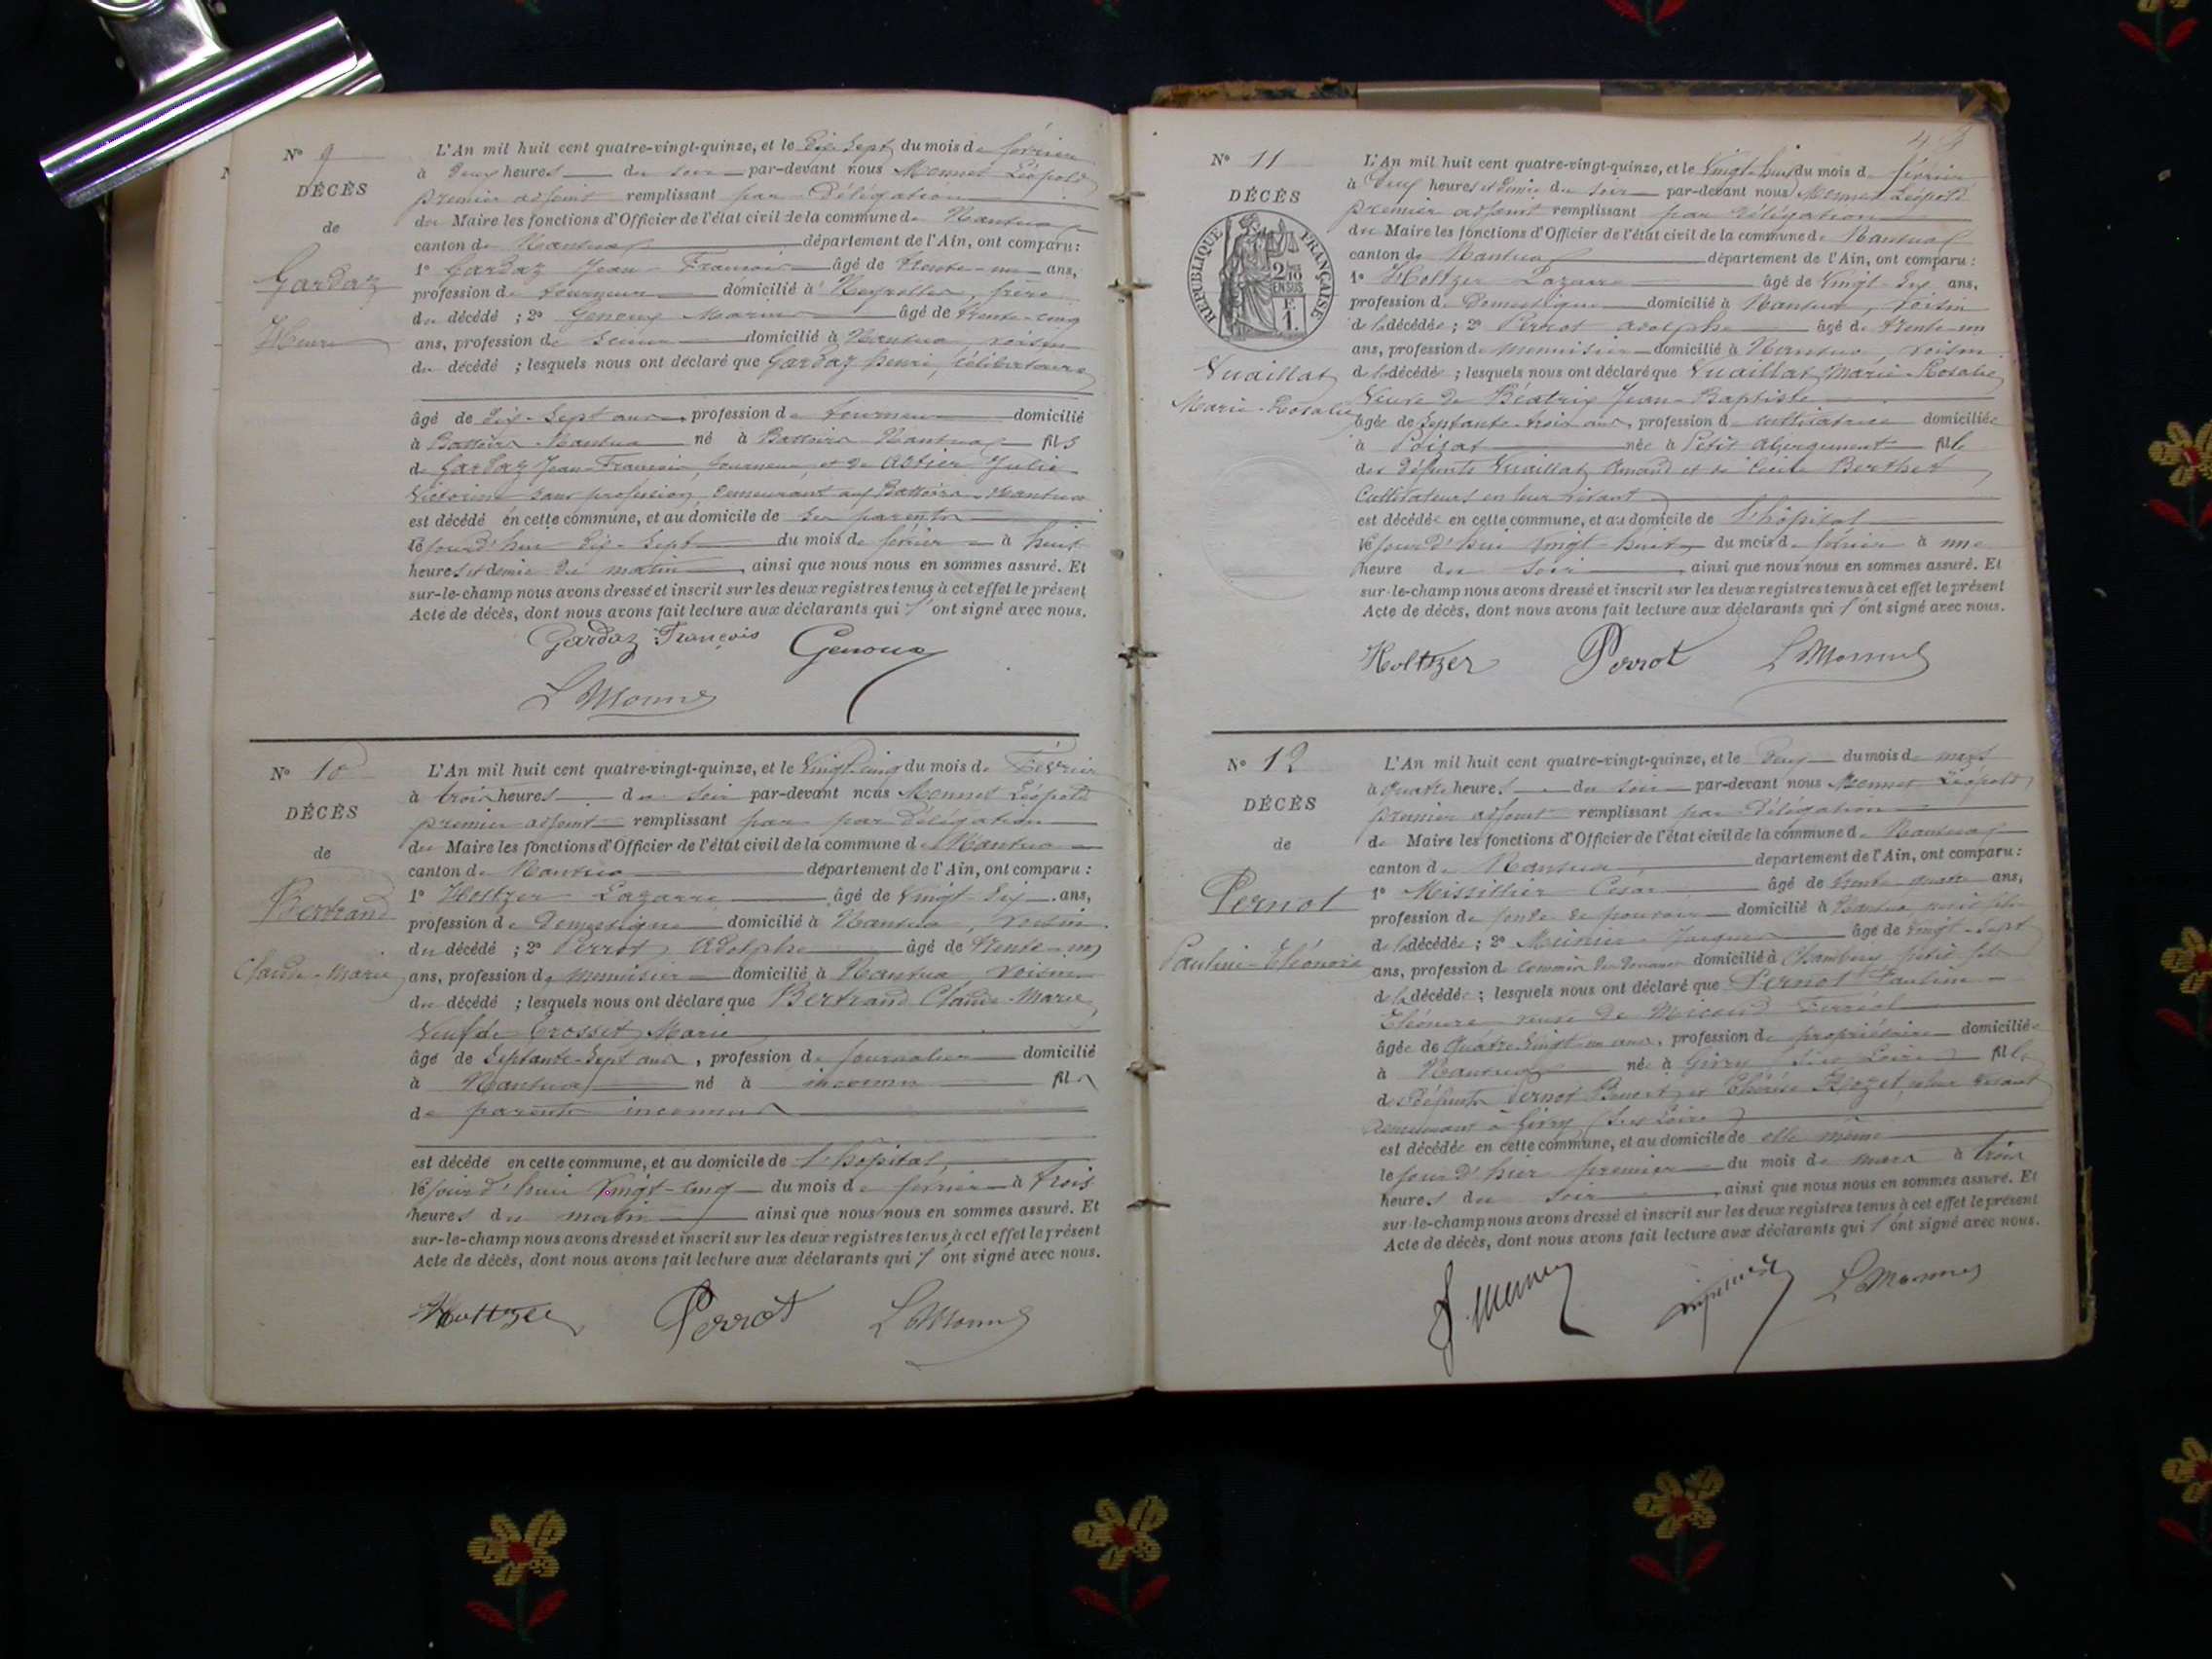 N° 9
DÉCÈS
de
Gardaz
Henri
L'An mil huit cent quatre-vingt-quinze, et le Dix-Sept du mois de février
à Deux heures du soir par-devant nous Monnet Léopold
premier adjoint remplissant par Délégation
du Maire les fonctions d'Officier de l'état civil de la commune de Nantua
canton de Nantua département de l'Ain, ont comparu :
1° Gardaz Jean François âgé de trente-un ans,
profession de tourneur domicilié à Neyrolles, frère
du décédé ; 2° Genoux Marius âgé de trente-cinq
ans, profession de domicilié à Nantua, voisin
du décédé ; lesquels nous ont déclaré que Gardaz henri, célibataire
âgé de dix-sept ans, profession de tourneur domicilié
à Battoirs-Nantua né à Battoirs-Nantua fils
de Gardaz Jean-François, tourneur, et de Astier Julie
Victorine sans profession, demeurant aux Battoirs-Nantua
est décédé en cette commune, et au domicile de ses parents
le jourd'hui dix-sept du mois de février à huit
heures et demie du matin, ainsi que nous nous en sommes assuré. Et
sur-le-champ nous avons dressé et inscrit sur les deux registres tenus à cet effet le présent
Acte de décès, dont nous avons fait lecture aux déclarants qui l'ont signé avec nous.
Gardaz François Genoux
L Monnet
N° 10
DÉCÈS
de
Bertrand
Claude-Marie
L'An mil huit cent quatre-vingt-quinze, et le Vingt-cinq du mois de Février
à trois heures du soir par-devant nous Monnet Léopold
premier adjoint remplissant par par Délégation
du Maire les fonctions d'Officier de l'état civil de la commune de Nantua
canton de Nantua département de l'Ain, ont comparu :
1° Holtzer Lazarre âgé de Vingt-Six ans,
profession de Domestique domicilié à Nantua, voisin
du décédé ; 2° Perrot Adolphe âgé de trente-un
ans, profession de menuisier domicilié à Nantua, voisin
du décédé ; lesquels nous ont déclaré que Bertrand Claude-Marie,
Veuf de Crosset Marie
âgé de Septante-Sept ans, profession de journalier domicilié
à Nantua né à inconnu fils
de parents inconnus
est décédé en cette commune, et au domicile de l'hôpital,
le jourd'hui Vingt-cinq du mois de février à trois
heures du matin ainsi que nous nous en sommes assuré. Et
sur-le-champ nous avons dressé et inscrit sur les deux registres tenus à cet effet le présent
Acte de décès, dont nous avons fait lecture aux déclarants qui l'ont signé avec nous.
Holtzer Perrot L Monnet
N° 11
DÉCÈS
RÉPUBLIQUE FRANÇAISE
2/10 EN SUS
F 1.
Vuaillat
Marie-Rosalie
L'An mil huit cent quatre-vingt-quinze, et le Vingt-huit du mois de février
à Deux heures et demie du soir par-devant nous Monnet Léopold
premier adjoint remplissant par délégation
du Maire les fonctions d'Officier de l'état civil de la commune de Nantua
canton de Nantua département de l'Ain, ont comparu :
1° Holtzer Lazarre âgé de Vingt-Six ans,
profession de Domestique domicilié à Nantua, voisin
de la décédée ; 2° Perrot adolphe âgé de trente-un
ans, profession de menuisier domicilié à Nantua, voisin
de la décédée ; lesquels nous ont déclaré que Vuaillat Marie-Rosalie,
Veuve de Béatrix Jean-Baptiste
âgée de Septante-trois ans, profession de cultivatrice domiciliée
à Poizat née à Petit Abergement fille
des défunts Vuaillat Amand et de Cécile Berthet
Cultivateurs en leur vivant
est décédée en cette commune, et au domicile de l'hôpital
le jourd'hui Vingt-huit du mois de février à une
heure du soir, ainsi que nous nous en sommes assuré. Et
sur-le-champ nous avons dressé et inscrit sur les deux registres tenus à cet effet le présent
Acte de décès, dont nous avons fait lecture aux déclarants qui l'ont signé avec nous.
Holtzer Perrot L Monnet
N° 12
DÉCÈS
de
Pernot
Pauline-Eléonore
L'An mil huit cent quatre-vingt-quinze, et le Deux du mois de mars
à quatre heures du soir par-devant nous Monnet Léopold,
premier adjoint remplissant par Délégation
de Maire les fonctions d'Officier de l'état civil de la commune de Nantua
canton de Nantua, département de l'Ain, ont comparu :
1° Missillier Cesar âgé de trente-quatre ans,
profession de fondé de pouvoir domicilié à Nantua petit fils
de la décédée ; 2° Meinier Jacques âgé de vingt-sept
ans, profession de commis des Douanes domicilié à Chambéry petit fils
de la décédée ; lesquels nous ont déclaré que Pernot Pauline
Eléonore veuve de Micoud Ferréol
âgée de Quatre Vingt-un ans, profession de propriétaire domiciliée
à Nantua née à Givry fille
de Défunts Pernot Benoit et Thérèse Rozet, leur vivant
demeurant à Givry
est décédée en cette commune, et au domicile de elle même
le jour d'hier premier du mois de mars à trois
heures du soir, ainsi que nous nous en sommes assuré. Et
sur-le-champ nous avons dressé et inscrit sur les deux registres tenus à cet effet le présent
Acte de décès, dont nous avons fait lecture aux déclarants qui l'ont signé avec nous.
L Monnet